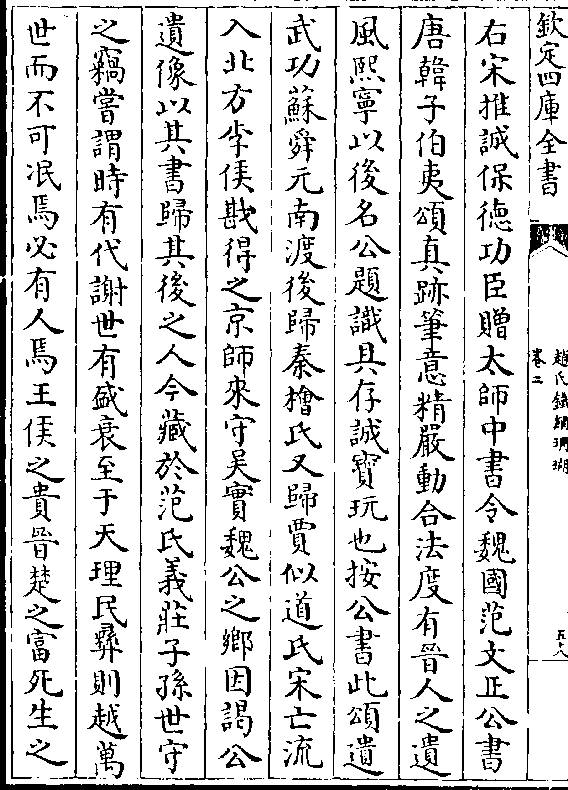 欽定四庫全書
趙氏鐵網珊瑚
卷二
五十八
右宋推誠保德功臣贈太師中書令魏國范文正公書
唐韓子伯夷頌真跡筆意精嚴動合法度有晉人之遺
風熙寧以後名公題識具存誠寳玩也按公書此頌遺
武功蘇舜元南渡後歸秦檜氏又歸賈似道氏宋亡流
入北方李侯戡得之京師來守吳實魏公之鄉因謁公
遺像以其書歸其後之人今藏於范氏義莊子孫世守
之竊嘗謂時有代謝世有盛衰至于天理民彞則越萬
世而不可冺焉必有人焉王侯之貴晉楚之富死生之